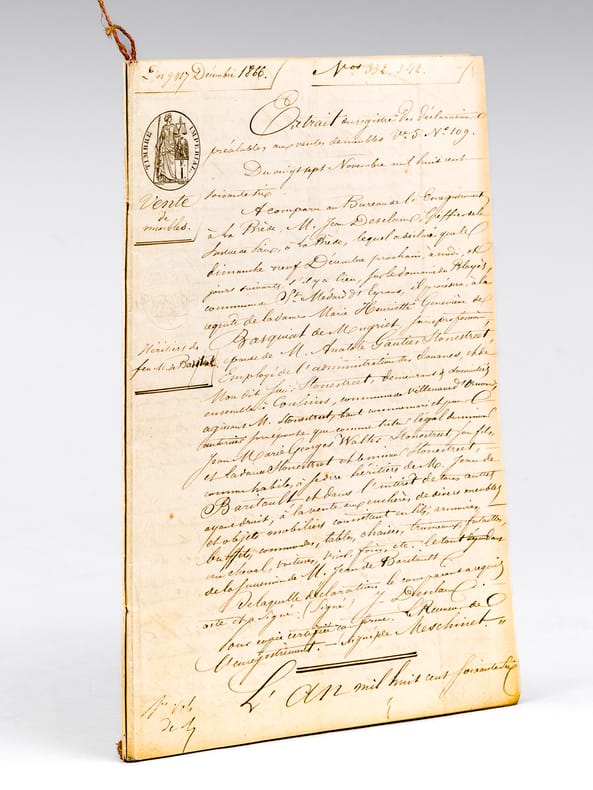 Des 9 &17 Décembre 1866.
Nos 332. 342.
TIMBRE IMPERIAL
Vente
de
meubles.
Héritiers de
feu M. de Baritault
Extrait du registre des déclarations
préalables aux ventes de meubles Vol. 5 No 109.
Du vingt sept Novembre mil huit cent
soixante six
A comparu au Bureau de l'Enregistrement
à la Brède, M. Jean Desclaux, Greffier de la
Justice de Paix, à la Brède, lequel a déclaré que le
dimanche neuf Décembre prochain, à midi, et
jours suivants, s'il y a lieu, sur le domaine de
commune St Médard d'Eyrans, il procédera, à la
requête de la dame Marie Henriette Geneviève de
Basquiat de Mugriet, sans profession,
épouse de M. Anatole Gautier Stonestreet,
Employé de l'administration des Douanes, et de
Mon dit Sieur Stonestreet, demeurant à
ensemble à Couhins, commune de Villenave d'Ornon,
agissant M. Stonestreet, tant comme mari et pour
autoriser son épouse que comme tuteur légal de mineur
Jean Marie Georges Walter Stonestreet son fils,
et la dame Stonestreet et le mineur Stonestreet,
comme habiles à se dire héritiers de M. Jean de
Baritault et dans l'intérêt de tous autres
ayant droit, à la vente aux enchères de divers meubles
et objets mobiliers consistant en lits, armoires,
buffets, commodes, tables, chaises, trumeaux, futailles,
un cheval, voitures, vins, foins, etc. le tout
de la succession de M. Jean de Baritault.
De laquelle déclaration le comparant a requis
acte et a signé. (Signé) J Desclaux.
Pour copie certifiée conforme. Le Receveur de
l'Enregistrement. — Signé de Meschinet. "
L'an mil huit cent soixante six